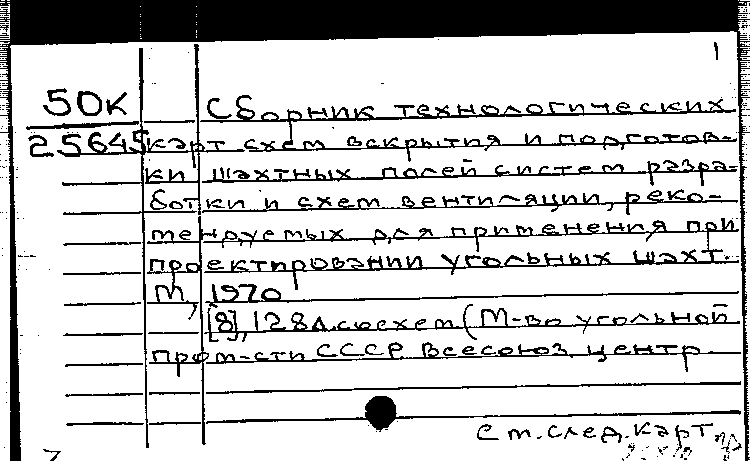 1
50К
25645
Сборник технологических
карт схем вскрытия и подготов-
ки шахтных полей систем разра-
ботки и схем вентиляции, реко-
мендуемых для применения при
проектировании угольных шахт.
М, 1970
[8], 128 л. со схем (М-во угольной
пром-сти СССР Всесоюз. центр.
См. след. карт.